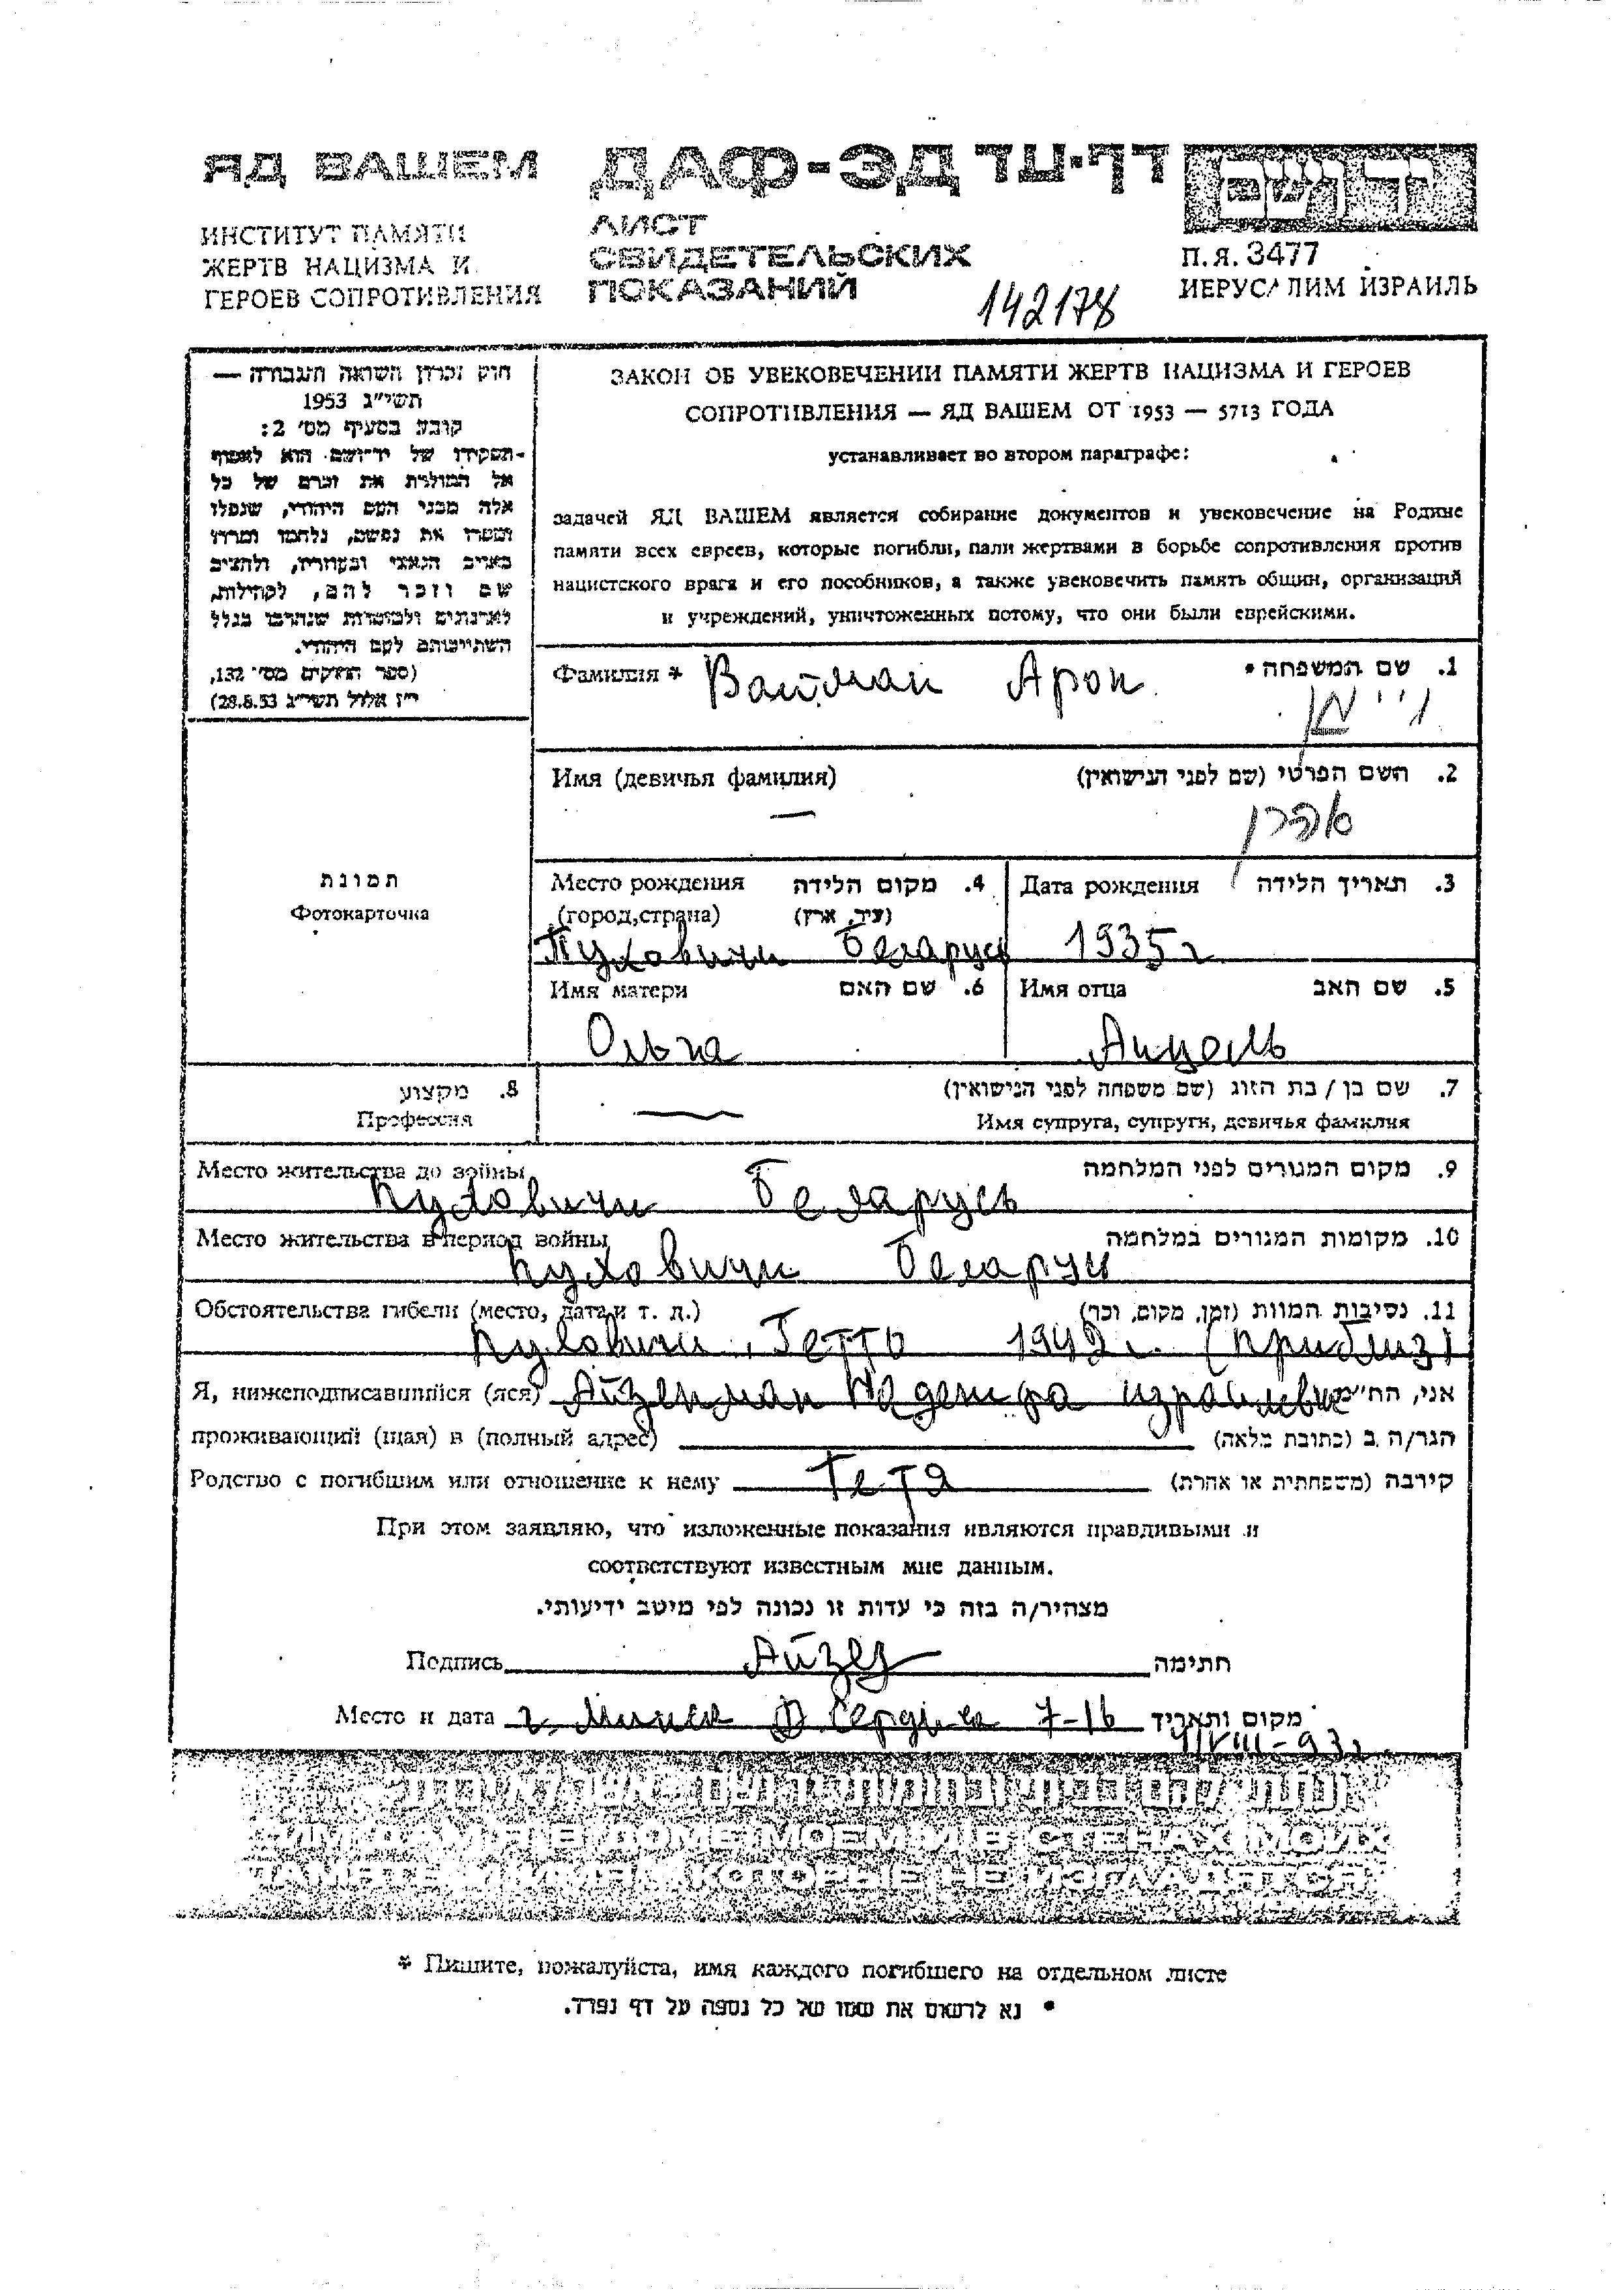 ЯД ВАШЕМ ДАФ-ЭД דף-עד יד ושם
ИНСТИТУТ ПАМЯТИ
ЖЕРТВ НАЦИЗМА И
ГЕРОЕВ СОПРОТИВЛЕНИЯ
ЛИСТ
СВИДЕТЕЛЬСКИХ
ПОКАЗАНИЙ
142178
П.Я. 3477
ИЕРУСАЛИМ ИЗРАИЛЬ
חוק זכרון השואה והגבורה —
תשי״ג 1953
קובע בסעיף מס׳ 2:
תפקידו של יד־ושם הוא לאסוף
אל המולדת את זכרם של כל
אלה מבני העם היהודי, שנפלו
ומסרו את נפשם, נלחמו ומרדו
באויב הנאצי ובעוזריו, ולהציב
שם וזכר להם, לקהילות,
לארגונים ולמוסדות שנחרבו בגלל
השתייכותם לעם היהודי.
(ספר החוקים מס׳ 132,
י״ז אלול תשי״ג 28.8.53)
ЗАКОН ОБ УВЕКОВЕЧЕНИИ ПАМЯТИ ЖЕРТВ НАЦИЗМА И ГЕРОЕВ
СОПРОТИВЛЕНИЯ — ЯД ВАШЕМ ОТ 1953 — 5713 ГОДА
устанавливает во втором параграфе:
задачей ЯД ВАШЕМ является собирание документов и увековечение на Родине
памяти всех евреев, которые погибли, пали жертвами в борьбе сопротивления против
нацистского врага и его пособников, а также увековечить память общин, организаций
и учреждений, уничтоженных потому, что они были еврейскими.
Фамилия * Вайман Арон 1. שם המשפחה •
ויימן
Имя (девичья фамилия) 2. השם הפרטי (שם לפני הנישואין)
— אהרן
תמונת
Фотокарточка
Место рождения 4. מקום הלידה
(город,страна) (עיר, ארץ)
Пуховичи Беларусь
Дата рождения 3. תאריך הלידה
1935 г
Имя матери 6. שם האם
Ольга
Имя отца 5. שם האב
Анцель
8. מקצוע
Профессия
7. שם בן / בת הזוג (שם משפחה לפני הנישואין)
— Имя супруга, супруги, девичья фамилия
Место жительства до войны 9. מקום המגורים לפני המלחמה
Пуховичи Беларусь
Место жительства в период войны 10. מקומות המגורים במלחמה
Пуховичи Беларусь
Обстоятельства гибели (место, дата и т. д.) 11. נסיבות המוות (זמן, מקום, וכו׳)
Пуховичи, Гетто 1942 г. (приблиз)
Я, нижеподписавшийся (яся) Айзенман Надежда Израилевна אני, הח״מ
проживающий (щая) в (полный адрес) הגר/ה ב (כתובת מלאה)
Родство с погибшим или отношение к нему Тетя קירבה (משפחתית או אחרת)
При этом заявляю, что изложенные показания являются правдивыми и
соответствуют известным мне данным.
מצהיר/ה בזה כי עדות זו נכונה לפי מיטב ידיעותי.
Подпись Айзен חתימה
Место и дата г. Минск 7-16 מקום ותאריך
VIII-93г.
ונתתי להם בביתי ובחומותי יד ושם אשר לא יכרת
ИМ ДАМ Я В ДОМЕ МОЕМ И В СТЕНАХ МОИХ
ПАМЯТЬ И ИМЯ, КОТОРЫЕ НЕ ИЗГЛАДЯТСЯ
* Пишите, пожалуйста, имя каждого погибшего на отдельном листе
• נא לרשום את שמו של כל נספה על דף נפרד.